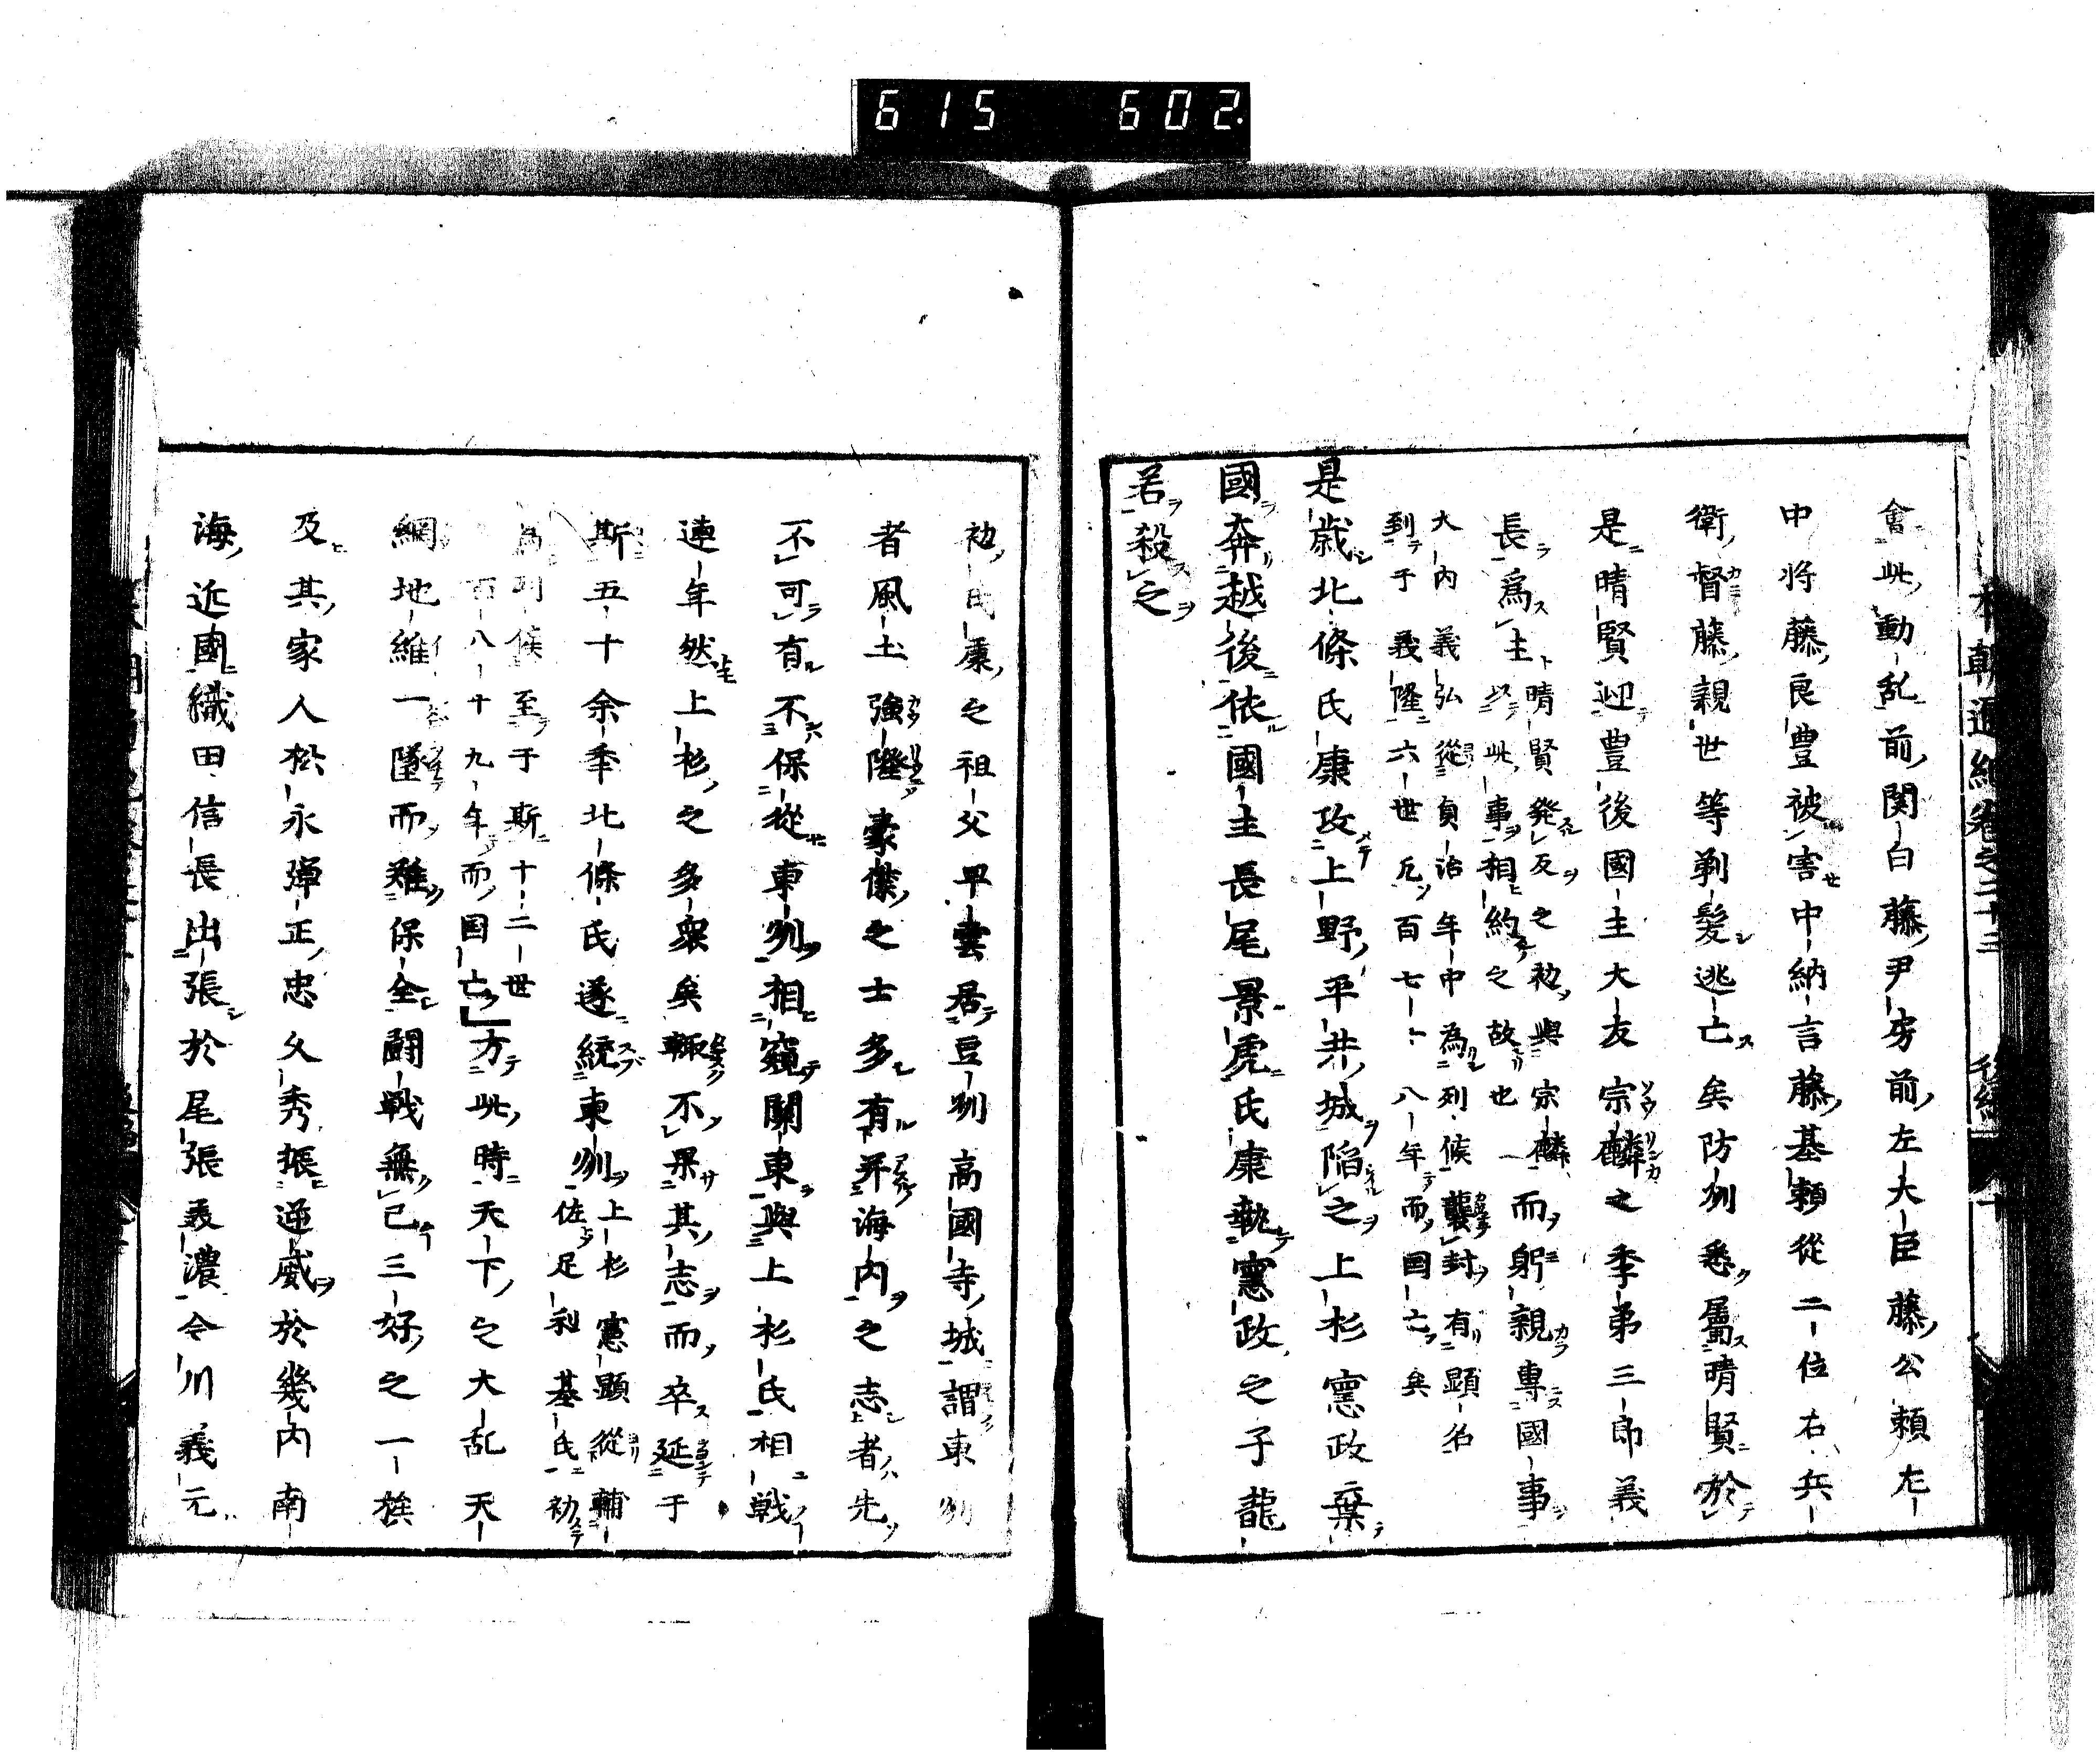 615 602.
會此動乱前関白藤尹房前左大臣藤公頼左
中将藤良豊被害中納言藤基頼從二位右兵
衛督藤親世等剃髪逃亡矣防州悉属晴賢於
是晴賢迎豊後國主大友宗麟之季弟三郎義
長為主晴賢発反之初與宗麟以此事相約之故也而躬親專國事
大内義弘從貞治年中為列候襲封有顕名
到于義隆六世凡百七十八年而国亡矣
是歳北條氏康攻上野平井城陥之上杉憲政棄
國奔越後依國主長尾景虎氏康執憲政之子龍
若殺之
初氏康之祖父早雲居豆州高國寺城謂東州
者風土強隆豪傑之士多有并海内之志者先
不可有不保從東州相窺關東與上杉氏相戦
連年然上杉之多衆矣輙不果其志而卒延于
斯五十余季北條氏遂統東州上杉憲顕從輔佐足利基氏初
為列候至于斯十二世
百八十九年而国亡方此時天下之大乱天
綱地維一墜而難保全闘戦無已三好之一族
及其家人松永弾正忠久秀振逆威於幾内南
海近國織田信長出張於尾張義濃今川義元